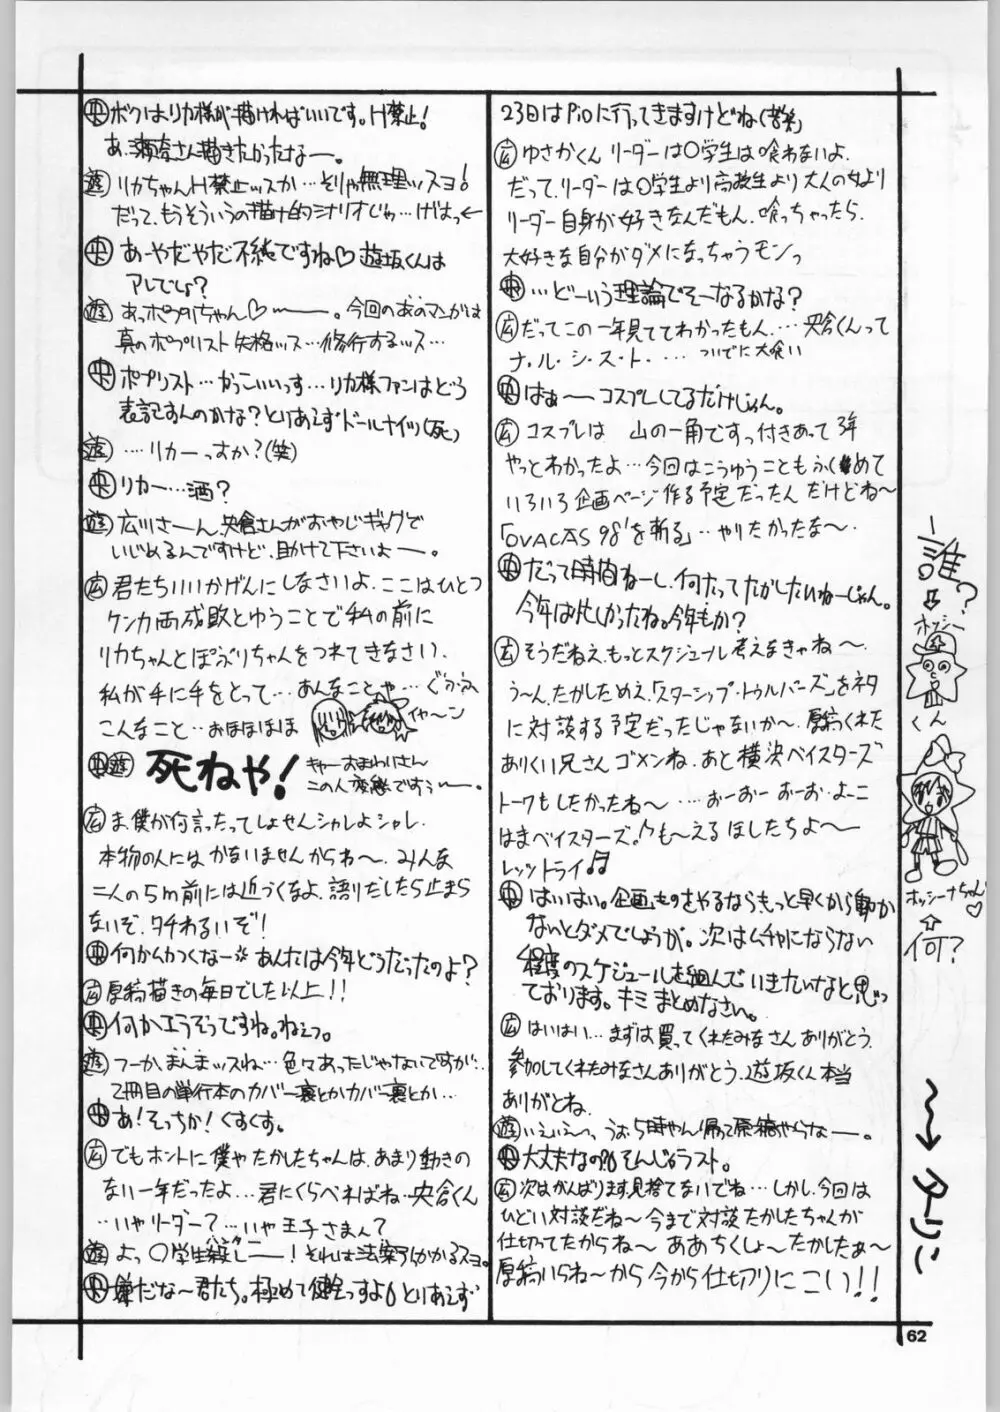 央 ボクはリカ様が描ければいいです。H禁止!
あ、瀬奈さん描きたかったなー。
遊 リカちゃんH禁止ッスか…そりゃ無理ッスヨ!
だって、もうそういうの描け的シナリオじゃ…げはっ←
央 あーやだやだ不純ですね♡遊坂くんは
アレでしょ?
遊 あっポプリちゃん♡〜ー。今回のあのマンガは
真のポプリスト失格ッス…修行するッス…
央 ポプリスト…かっこいいっす…リカ様ファンはどう
表記すんのかな?とりあえずドールナイツ(死)
遊 ….リカーっすか?(笑)
央 リカー…酒?
遊 広川さーん、央倉さんがおやじギャグで
いじめるんですけど、助けて下さいよー。
広 君たちいいかげんにしなさいよ、ここはひとつ
ケンカ両成敗とゆうことで私の前に
リカちゃんとぽぷりちゃんをつれてきなさい、
私が手に手をとって…あんなことや…ぐふふ
こんなこと…おほほほほ
イヤ〜ン
央遊 死ねや!
キャーおまわりさん
この人変態ですぅー。
広 ま、僕が何言ったってしょせんシャレよシャレ、
本物の人にはかないませんからね〜、みんな
二人の5m前には近づくなよ、語りだしたら止まら
ないぞ、タチわるいぞ!
央 何かムカつくなー※あんたは今年どうだったのよ?
広 原稿描きの毎日でした以上!!
央 何かエラそうですね。ねぇっ。
遊 つーか、まんまッスね…色々あったじゃないですか…
2冊目の単行本のカバー裏とかカバー裏とか…
央 あ!そっちか!くすくす。
広 でもホントに僕やたかしたちゃんは、あまり動きの
ない一年だったよ…君にくらべればね…央倉くん
…いやリーダー?…いや王子さまぁ?
遊 よっ〇学生殺しー!それは法案にひっかかるスヨ。
ハンター
央 嫌だな〜君たち。極めて健全っすよ!とりあえず
23日はPiOに行ってきますけどね(苦笑)
広 ゆさかくんリーダーは〇学生は喰わないよ、
だって、リーダーは〇学生より高校生より大人の女より
リーダー自身が好きなんだもん、喰っちゃったら、
大好きな自分がダメになっちゃうモンっ
央 …どーいう理論でそーなるかな?
広 だってこの一年見ててわかったもん….央倉くんって
ナ・ル・シ・ス・ト・…. ついでに大喰い
央 はぁ〜コスプレしてるだけじゃん。
広 コスプレは 山の一角ですっ付きあって3年
やっとわかったよ…今回はこうゆうこともふくめて
いろいろ企画ページ作る予定だったんだけどね〜
「OVACAS98'を斬る」…やりたかったな〜、
央 だって時間ねーし、何たってたかしたいねーじゃん。
今年は忙しかったね。今年もか?
広 そうだねえ、もっとスケジュール考えなきゃね〜、
う〜ん、たかしためえ、「スターシップ・トゥルパーズ」をネタ
に対談する予定だったじゃないか〜、原稿くれた
ありくい兄さんゴメンね、あと横浜ベイスターズ
トークもしたかったね〜….おーおー おーお・よーこ
はまベイスターズ♪も〜えるほしたちよ〜
レッツトライ♫
央 はいはい。企画ものをやるなら、もっと早くから動か
ないとダメでしょうが。次はムチャにならない
程度のスケジュールを組んでいきたいなと思っ
ております。キミまとめなさい。
広 はいはい…まずは買ってくれたみなさんありがとう、
参加してくれたみなさんありがとう、遊坂くん本当
ありがとね、
遊 いえいえ〜っ、うお、5時やん、帰って原稿やらなー。
央 大丈夫なの?んじゃラスト。
広 次はがんばります、見捨てないでね…しかし、今回は
ひどい対談だね〜今まで対談たかしたちゃんが
仕切ってたからね〜ああちくしょ〜たかしたぁ〜
原稿いらね〜から今から仕切りにこい!!
誰?
ホッシー
くん
ホッシーナちゃん
♡
何?
〜→ターリン
62